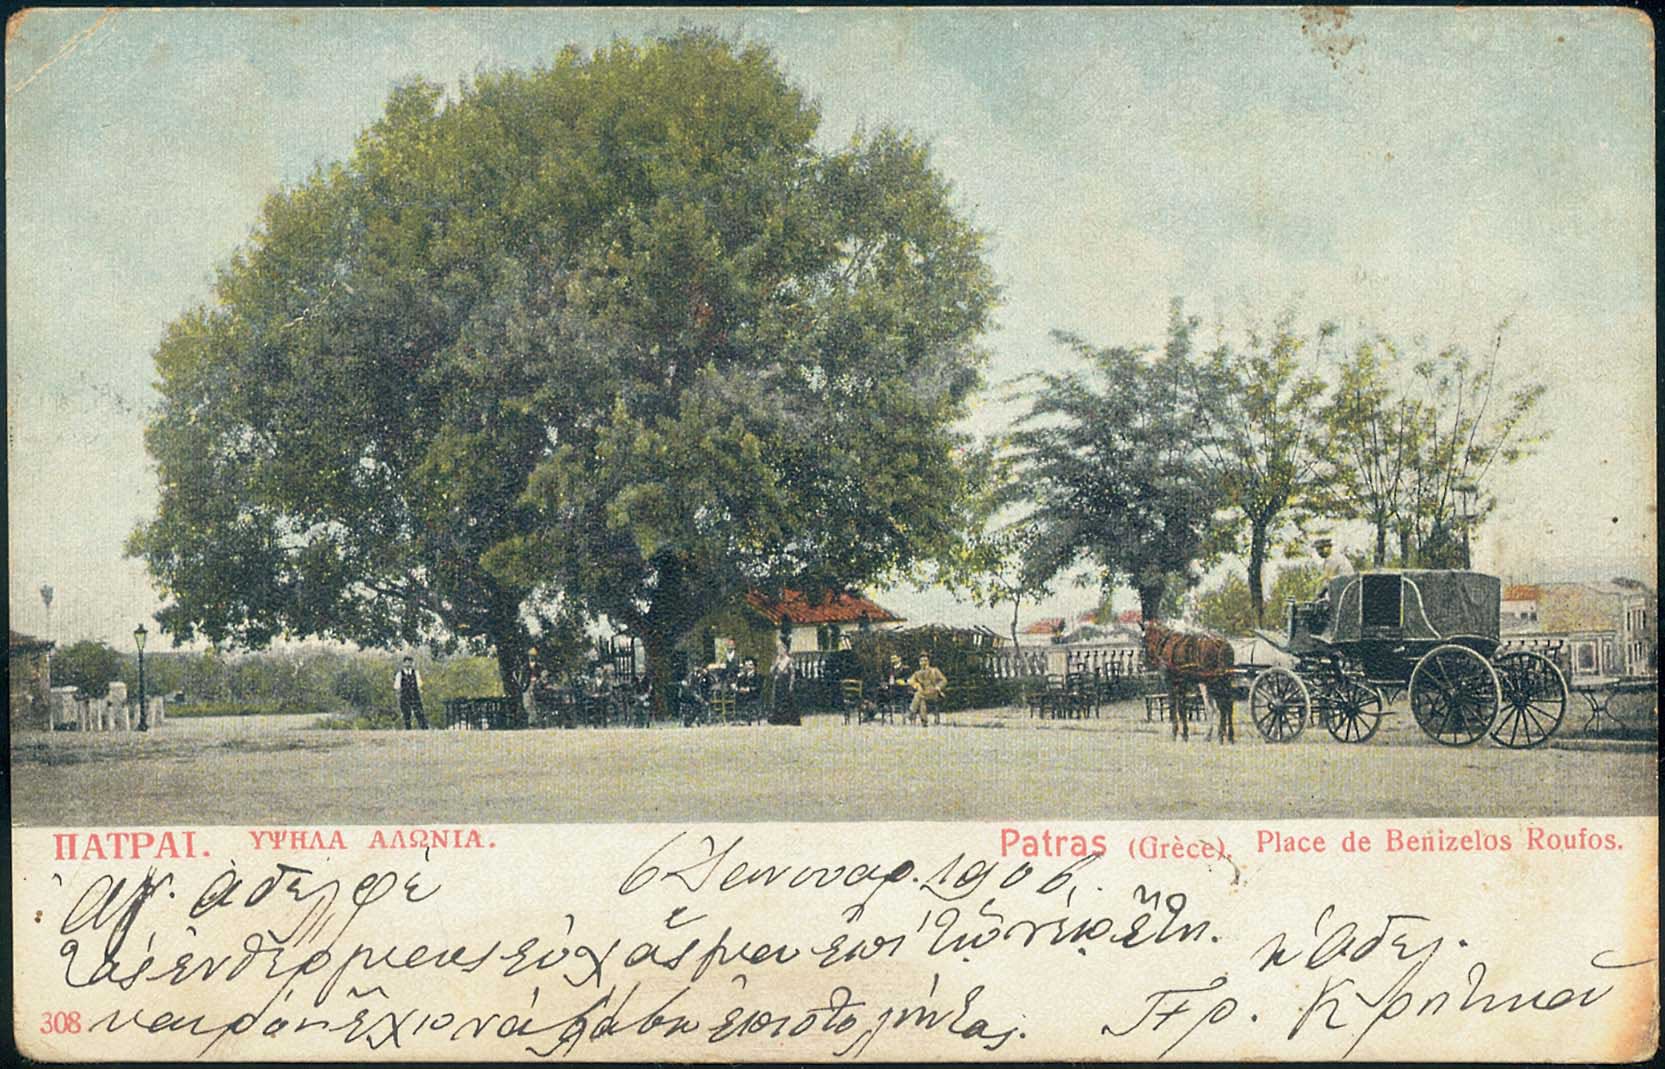 ΠΑΤΡΑΙ. ΥΨΗΛΑ ΑΛΩΝΙΑ.
Patras (Grèce). Place de Benizelos Roufos.
Ἀγ. ἀδελφέ
6 Ιανουαρ. 1906.
Τὰς ἐνθέρμους εὐχάς μου ἐπὶ τῷ νέῳ ἔτει.
καιρὸν ἔχω νὰ λάβω ἐπιστολήν σας.
308